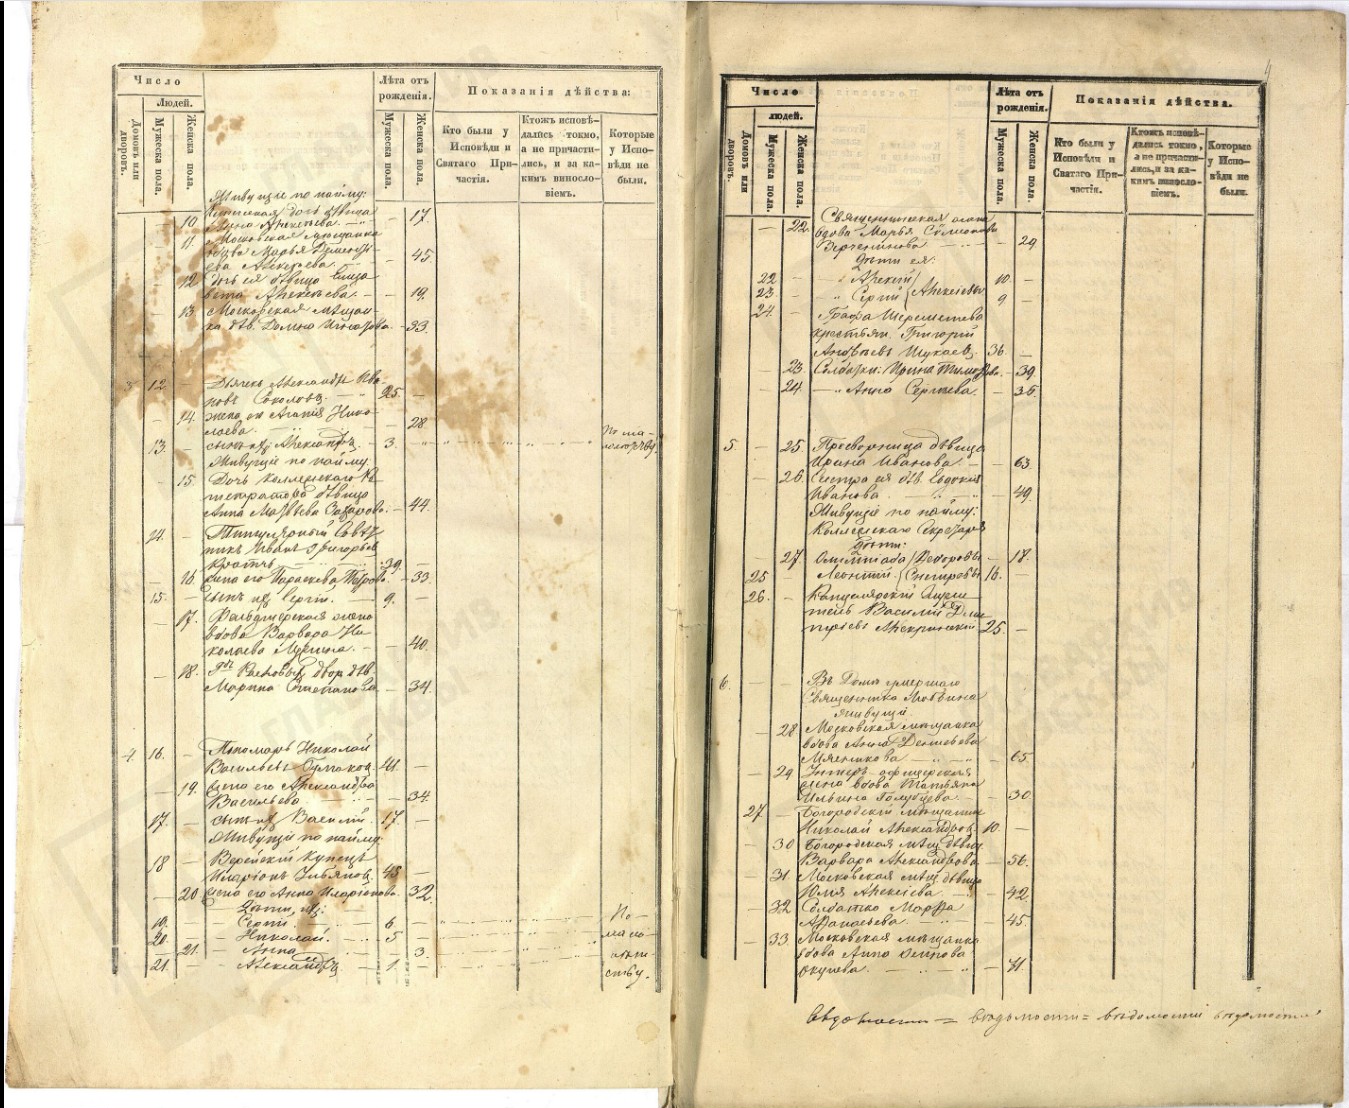 Число
Людей.
Домовъ или дворовъ.
Мужеска пола.
Женска пола.
Лѣта отъ рожденія.
Мужеска пола.
Женска пола.
Показанія дѣйства:
Кто были у Исповѣди и Святаго Причастія.
Ктожъ исповѣдались токмо, а не причастились, и за какимъ винословіемъ.
Которые у Исповѣди не были.
Живущіе по найму:
10. дочь дѣвица
Алексѣева. – 17.
11. Московская мѣщанка
вдова Марья
Алексѣева. – 45.
12. дочь ея дѣвица Елиза
вета Алексѣева. – 19.
13. Московская мѣщан
ка дѣв. Домна – 33.
3 12. Дьячекъ Александръ Ива
новъ Соколовъ. 25.
14. жена его Агапія Нико
лаева. – 28
13. сынъ ихъ Александръ 3. По ма
лолѣтству
Живущіе по найму.
15. Дочь Коллежскаго Ре
гистратора дѣвица
Анна Матвѣева Захарова. – 44.
14. Титулярный Совѣт
никъ Иванъ Григорьев
39.
16. жена его Параскева Петрова. – 33.
15. сынъ ихъ Сергій. – 9. –
17. Фельдшерская жена
вдова Варвара Ни
колаева – 40.
18. двор. дѣв.
Марина Степанова – 34.
4 16. Пономарь Николай
Васильевъ 41. –
19. жена его Александра
Васильева – 34.
17. сынъ ихъ Василій. 17. –
Живущіе по найму
18 Верейскій купецъ
Иларіонъ Ульяновъ. 45 –
20. жена его Анна Иларіонова. – 32.
Дѣти ихъ:
19. Сергій. 6 – По
20. Николай. 5 – мало
21. Анна 3. лѣт
21. Александръ 1. – ству.
4
Число
людей.
Домовъ или дворовъ.
Мужеска пола.
Женска пола.
Лѣта отъ рожденія.
Мужеска пола.
Женска пола.
Показанія дѣйства.
Кто были у Исповѣди и Святаго Причастія.
Ктожъ исповѣдались токмо, а не причастились, и за какимъ винословіемъ.
Которые у Исповѣди не были.
22. Священническая жена
вдова Марья Симеонова
– 29
Дѣти ея:
22 – Алексій 10. –
23. – Сергій Алексіевы 9 –
24. – Графа Шереметева
крестьян. Григорій
36. –
23. Солдатки: Ирина – 39
24. Анна Сергѣева. – 35.
5 25. Просворница дѣвица
Ирина Иванова. – 63.
26. Сестра ея дѣв. Евдокія
Иванова – 49.
Живущіе по найму:
Коллежскаго Секретаря
дѣти:
27. Олимпіада Ѳедоровы – 18.
25 – Леонтій. Снегиревы 16. –
26. – Канцелярскій Служи
тель Василій Дми
тріевъ 25. –
6. Въ Домѣ умершаго
Священника
живущій
28. Московская мѣщанка
вдова Анна Денисьева
Мясникова – 65
29 Унтеръ-офицерская
жена вдова Татьяна
Ильина Голубцева. – 30.
27 Богородскій мѣщанинъ
Николай Александровъ. 10. –
30 Богородская мѣщ. дѣвиц.
Варвара Александрова – 56.
31 Московская мѣщ. дѣвица
Юлія Алексіева. – 42
32 Солдатка Марѳа
Аѳанасьева. – 45.
33 Московская мѣщанка
вдова Анна Осипова
– 71.
вѣдомости = вѣдомости = вѣдомости вѣдомости